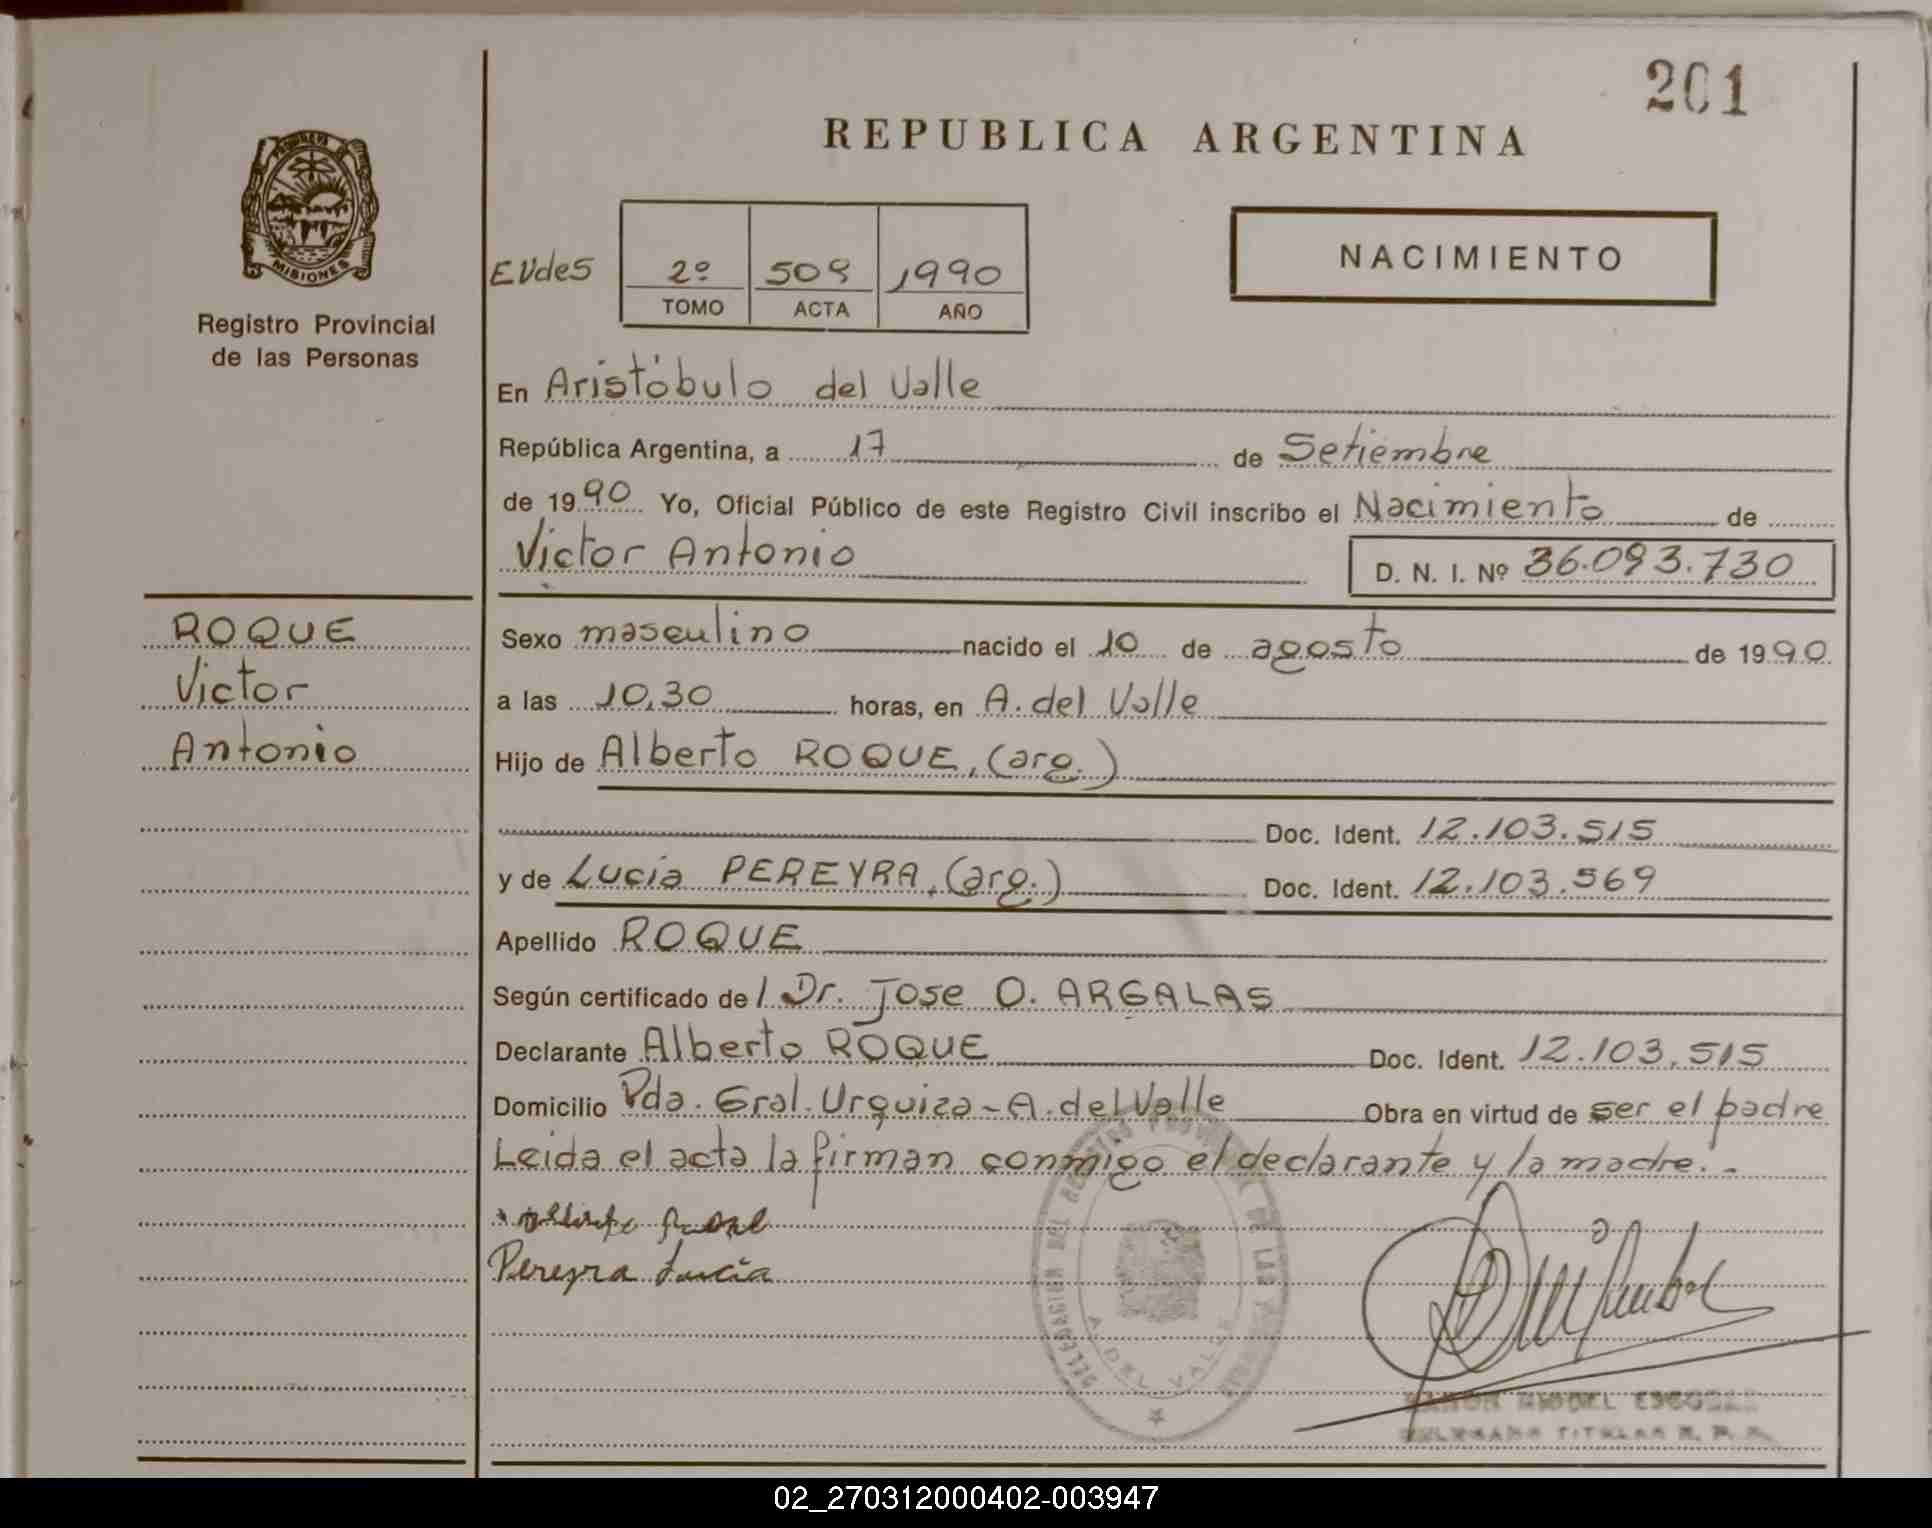 201
REPUBLICA ARGENTINA
PROVINCIA DE
MISIONES
Registro Provincial
de las Personas
EVdeS
2º 509 1990
TOMO ACTA AÑO
NACIMIENTO
En Aristóbulo del Valle
República Argentina, a 17 de Setiembre
de 1990 Yo, Oficial Público de este Registro Civil inscribo el Nacimiento de
Victor Antonio D. N. I. Nº 36.093.730
ROQUE
Victor
Antonio
Sexo masculino nacido el 10 de agosto de 1990
a las 10,30 horas, en A. del Valle
Hijo de Alberto ROQUE, (arg.)
Doc. Ident. 12.103.515
y de Lucia PEREYRA, (arg.) Doc. Ident. 12.103.569
Apellido ROQUE
Según certificado de l Dr. Jose O. ARGALAS
Declarante Alberto ROQUE Doc. Ident. 12.103.515
Domicilio Pda. Gral. Urquiza - A. del Valle Obra en virtud de ser el padre
Leida el acta la firman conmigo el declarante y la madre.-
Pereyra Lucia
A. DEL VALLE
02_270312000402-003947